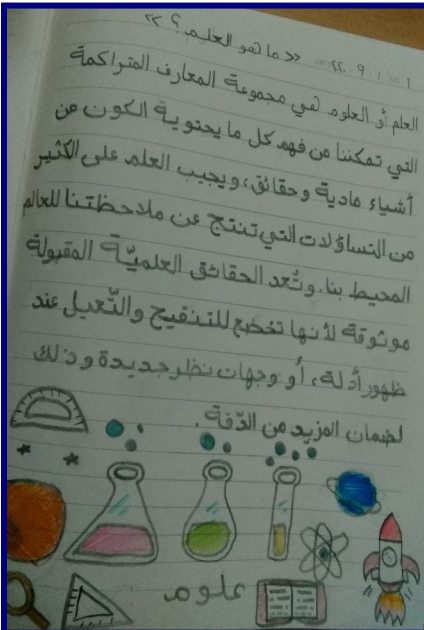 «ما هو العلم؟»
العلم أو العلوم هي مجموعة المعارف المتراكمة
التي تمكننا من فهم كل ما يحتويه الكون من
أشياء مادية وحقائق، ويجيب العلم على الكثير
من التساؤلات التي تنتج عن ملاحظتنا للعالم
المحيط بنا. وتُعد الحقائق العلميّة المقبولة
موثوقة لأنها تخضع للتنقيح والتّعديل عند
ظهور أدلة، أو وجهات نظر جديدة وذلك
لضمان المزيد من الدّقة.
علوم